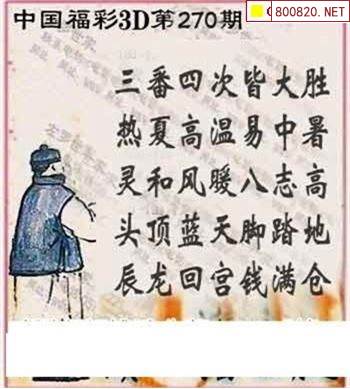 中国福彩3D第270期
800820.NET
三番四次皆大胜
热夏高温易中暑
灵和风暖八志高
头顶蓝天脚踏地
辰龙回宫钱满仓